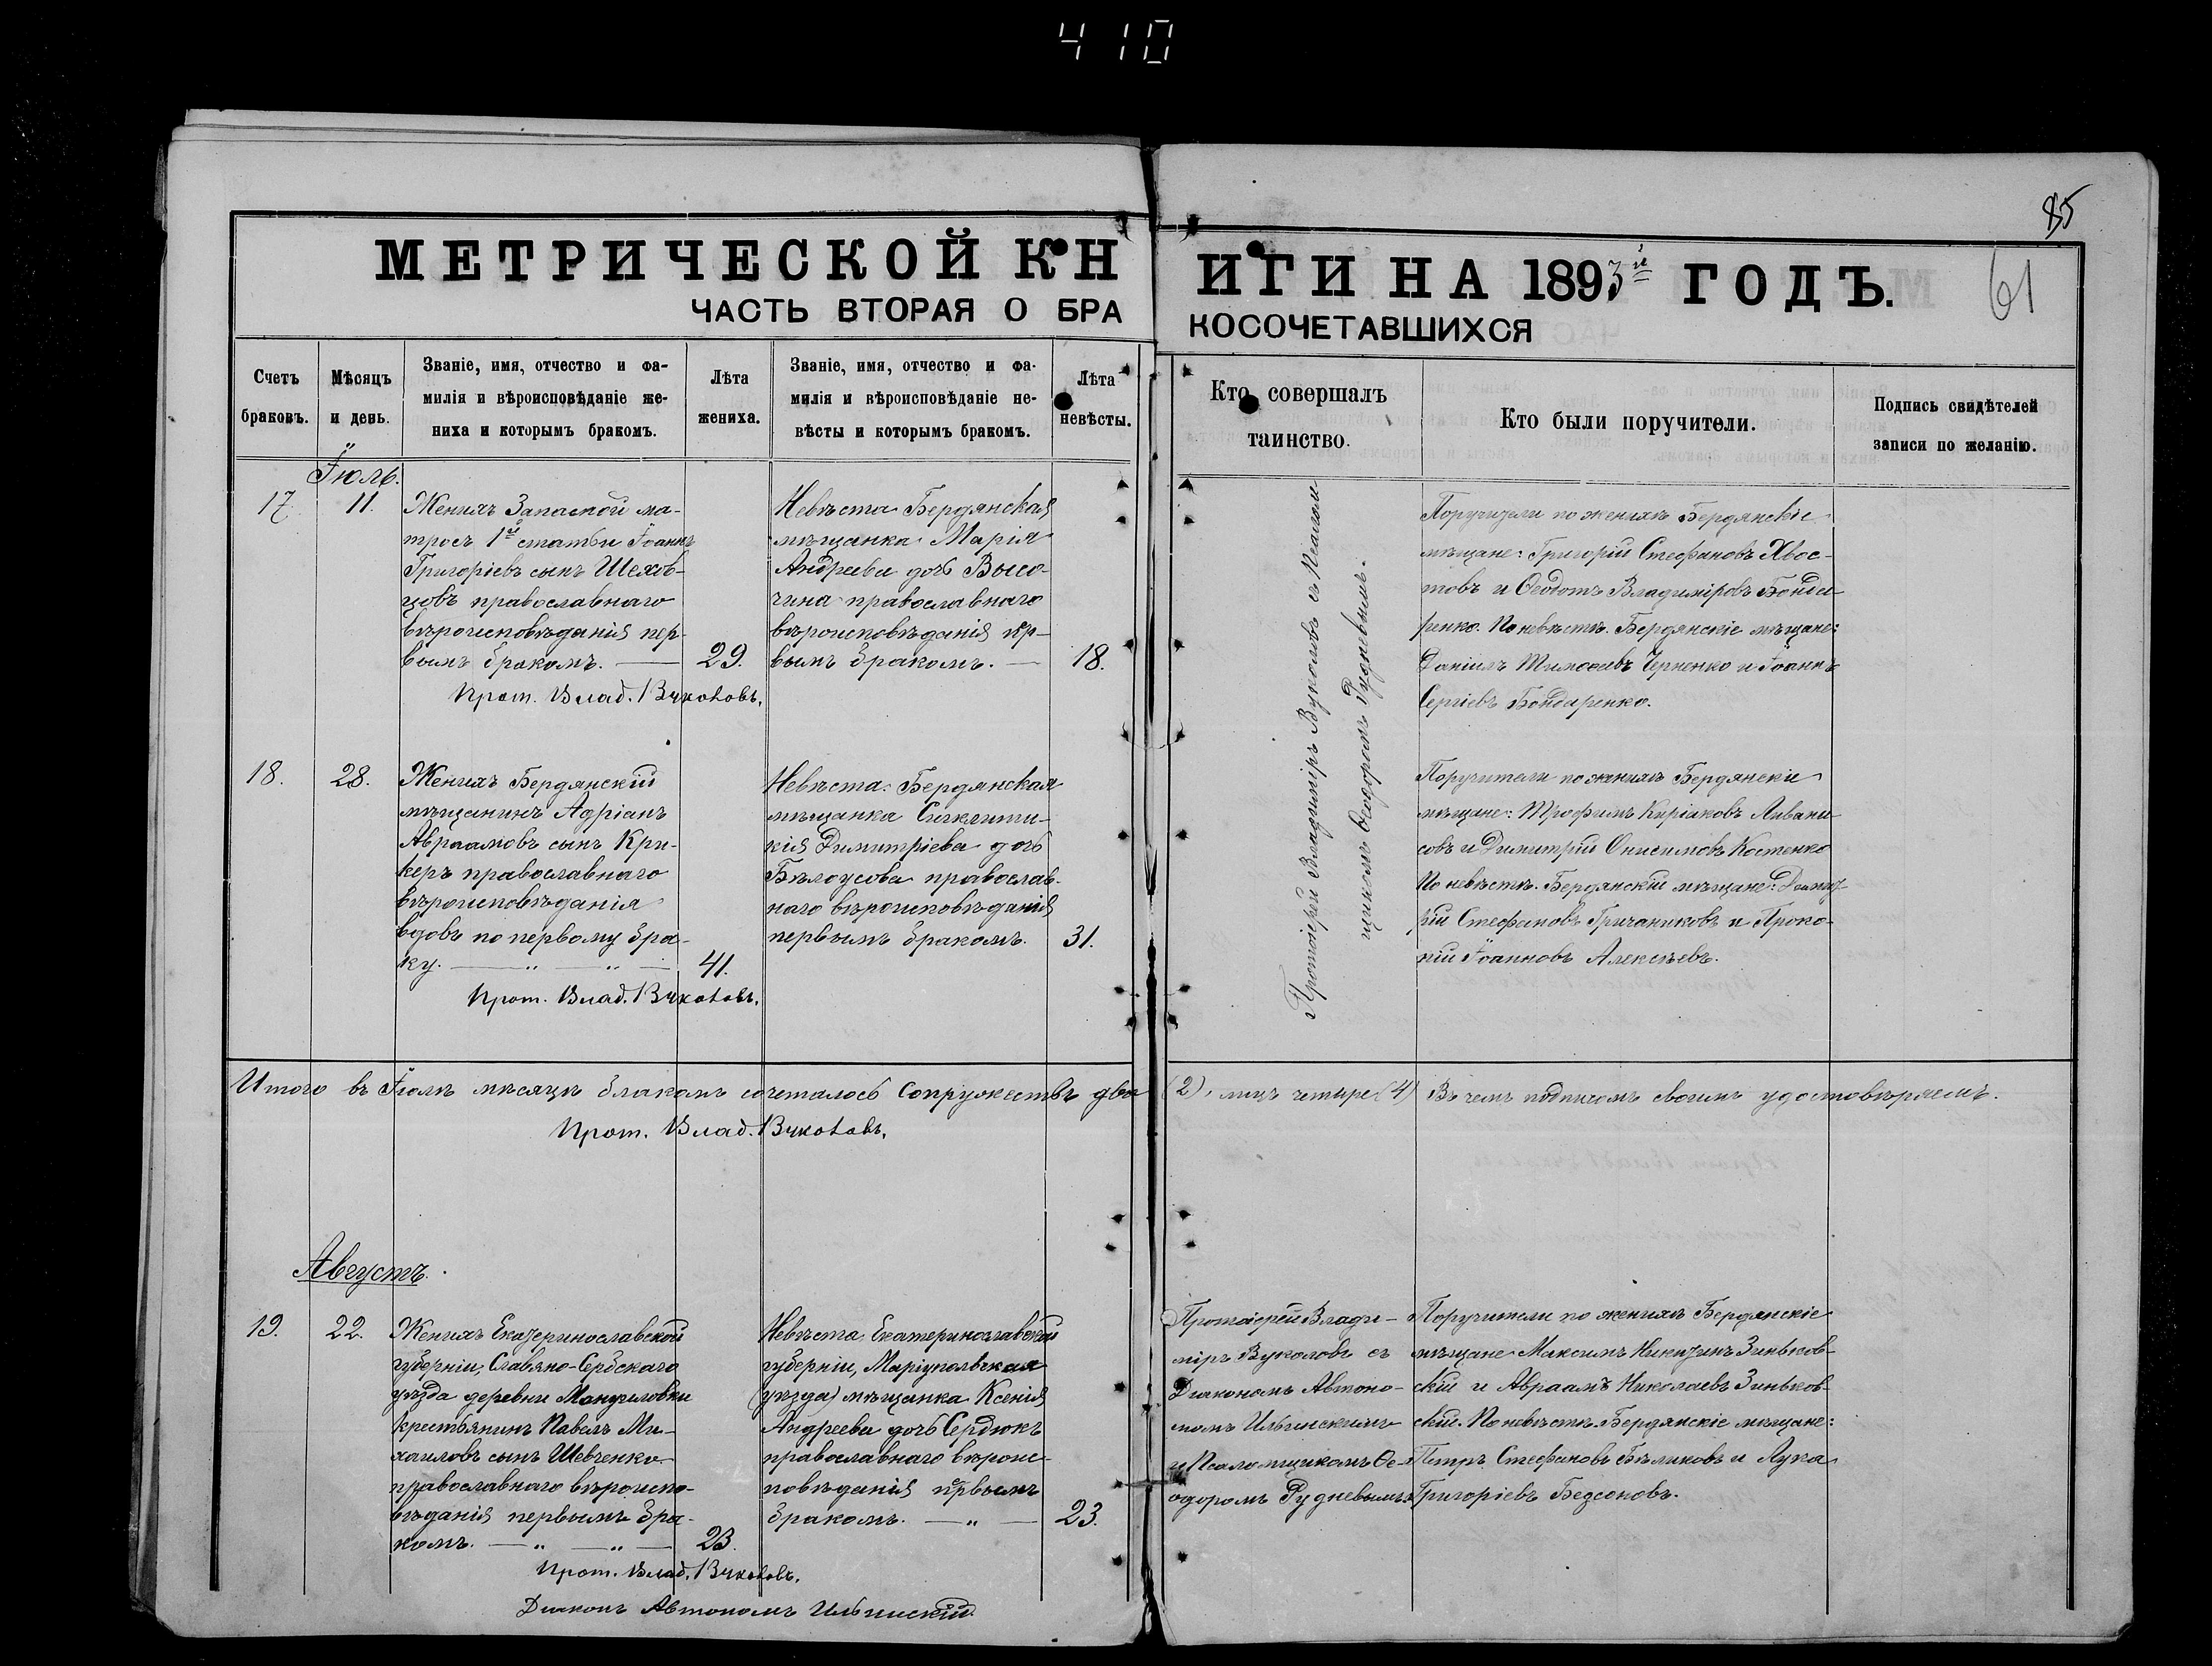 410
85
61
МЕТРИЧЕСКОЙ КНИГИ НА 1893й ГОДЪ.
ЧАСТЬ ВТОРАЯ О БРАКОСОЧЕТАВШИХСЯ
Счетъ
браковъ.
Мѣсяцъ
и день.
Званіе, имя, отчество и фа-
милія и вѣроисповѣданіе же-
ниха и которымъ бракомъ.
Лѣта
жениха.
Званіе, имя, отчество и фа-
милія и вѣроисповѣданіе не-
вѣсты и которымъ бракомъ.
Лѣта
невѣсты.
Кто совершалъ
таинство.
Кто были поручители.
Подпись свидѣтелей
записи по желанію.
Іюль.
17.
11.
Женихъ Запасной ма-
тросъ 1й статьи Іоаннъ
Григоріевъ сынъ Шехов-
цовъ православнаго
вѣроисповѣданія пер-
вымъ бракомъ.
29.
Прот. Влад. Вуколовъ.
Невѣста Бердянская
мѣщанка Марія
Андреева дочь Высо-
чина православнаго
вѣроисповѣданія пер-
вымъ бракомъ.
18.
Протоіерей Владиміръ Вуколовъ съ Псалом-
щикомъ Ѳеодоромъ Рудневымъ.
Поручители по женихѣ Бердянскіе
мѣщане: Григорій Стефановъ Хвос-
товъ и Ѳеодотъ Владиміровъ Бонда-
ренко. По невѣстѣ. Бердянскіе мѣщане:
Даніилъ Тимоѳеевъ Черненко и Іоаннъ
Сергіевъ Бондаренко.
18.
28.
Женихъ Бердянскій
мѣщанинъ Адріанъ
Авраамовъ сынъ Кри-
керъ православнаго
вѣроисповѣданія
вдовъ по первому бра-
ку.
41.
Прот. Влад. Вуколовъ.
Невѣста Бердянская
мѣщанка Синклити-
кія Димитріева дочь
Бѣлоусова православ-
наго вѣроисповѣданія
первымъ бракомъ.
31.
Поручители по женихѣ Бердянскіе
мѣщане: Трофимъ Киріаковъ Ливани-
совъ и Димитрій Онисимовъ Костенко
По невѣстѣ. Бердянскій мѣщане: Димит-
рій Стефановъ Гричаниковъ и Проко-
пій Іоанновъ Алексѣевъ.
Итого въ Іюлѣ мѣсяцѣ бракомъ сочеталось Супружествъ два (2), лицъ четыре (4) Въ чемъ подписомъ своимъ удостовѣряемъ.
Прот. Влад. Вуколовъ.
Августъ.
19.
22.
Женихъ Екатеринославской
губерніи, Славяно-Сербскаго
уѣзда деревни Мануиловки
крестьянинъ Павелъ Ми-
хаиловъ сынъ Шевченко
православнаго вѣроиспо-
вѣданія первымъ бра-
комъ.
23.
Прот. Влад. Вуколовъ.
Діаконъ Автономъ Ильинскій
Невѣста Екатеринославской
губерніи, Маріупольская
(уѣзда) мѣщанка Ксенія
Андреева дочь Сердюкъ
православнаго вѣроис-
повѣданія первымъ
бракомъ.
23.
Протоіерей Влади-
міръ Вуколовъ съ
Діакономъ Автоно-
момъ Ильинскимъ
и Псаломщикомъ Ѳе-
одоромъ Рудневымъ.
Поручители по женихѣ Бердянскіе
мѣщане Максимъ Никитинъ Зиньков-
скій и Авраамъ Николаевъ Зиньков-
скій. По невѣстѣ. Бердянскіе мѣщане:
Петръ Стефановъ Бѣликовъ и Лука
Григоріевъ Безсоновъ.